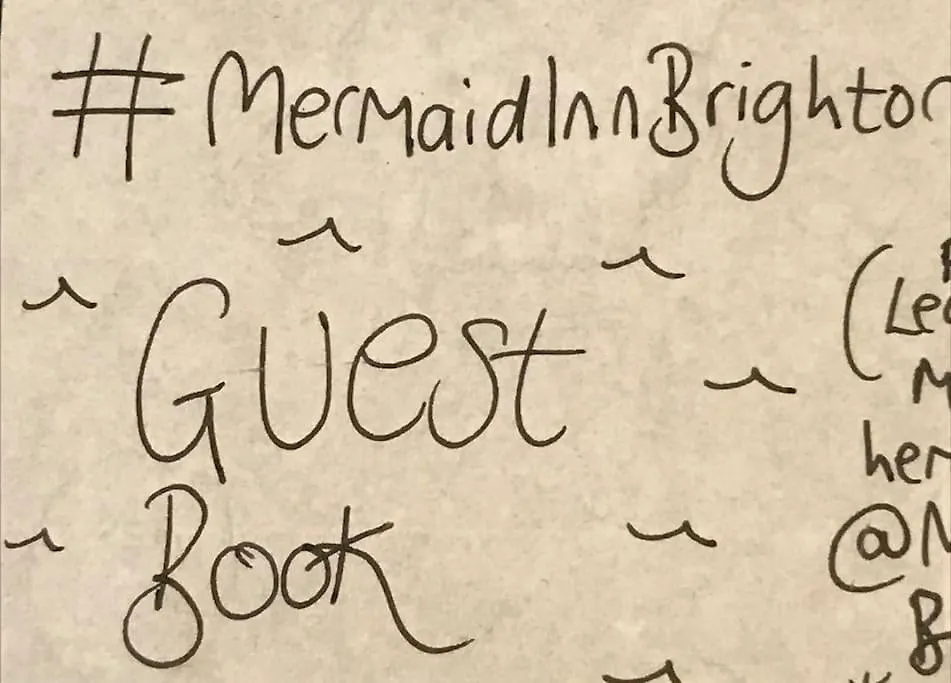 #MermaidInnBrighton
Guest
Book
(Le
her
@M
B